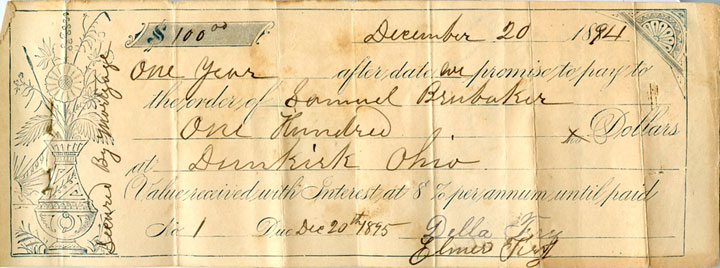 $ 100 00
December 20 1894
One Year after date we promise to pay to
the order of Samuel Brubaker
One Hundred Dollars
at Dunkirk Ohio
Value received with Interest at 8 % per annum until paid
No 1 Due Dec 20th 1895
Della Fry
Elmer Fry
Secured By Mortgage